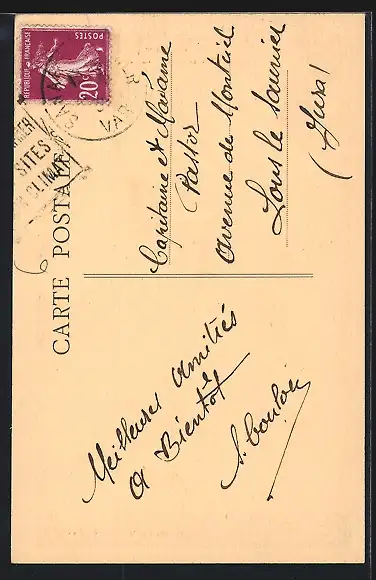 CARTE POSTALE
REPUBLIQUE FRANÇAISE
POSTES
20c
VAR
SITES
CLIMAT
Meilleures Amitiés
A Bientôt
Capitaine et Madame
Pastor
Avenue de Montciel
Lons le Saunier
(Jura)
6